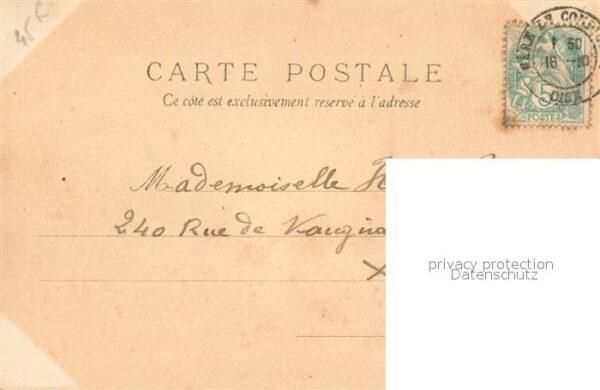 45F
CARTE POSTALE
Ce côté est exclusivement reservé à l'adresse
1 50
16
OISE
5
POSTES
Mademoiselle
240 Rue de Vaugira
privacy protection
Datenschutz